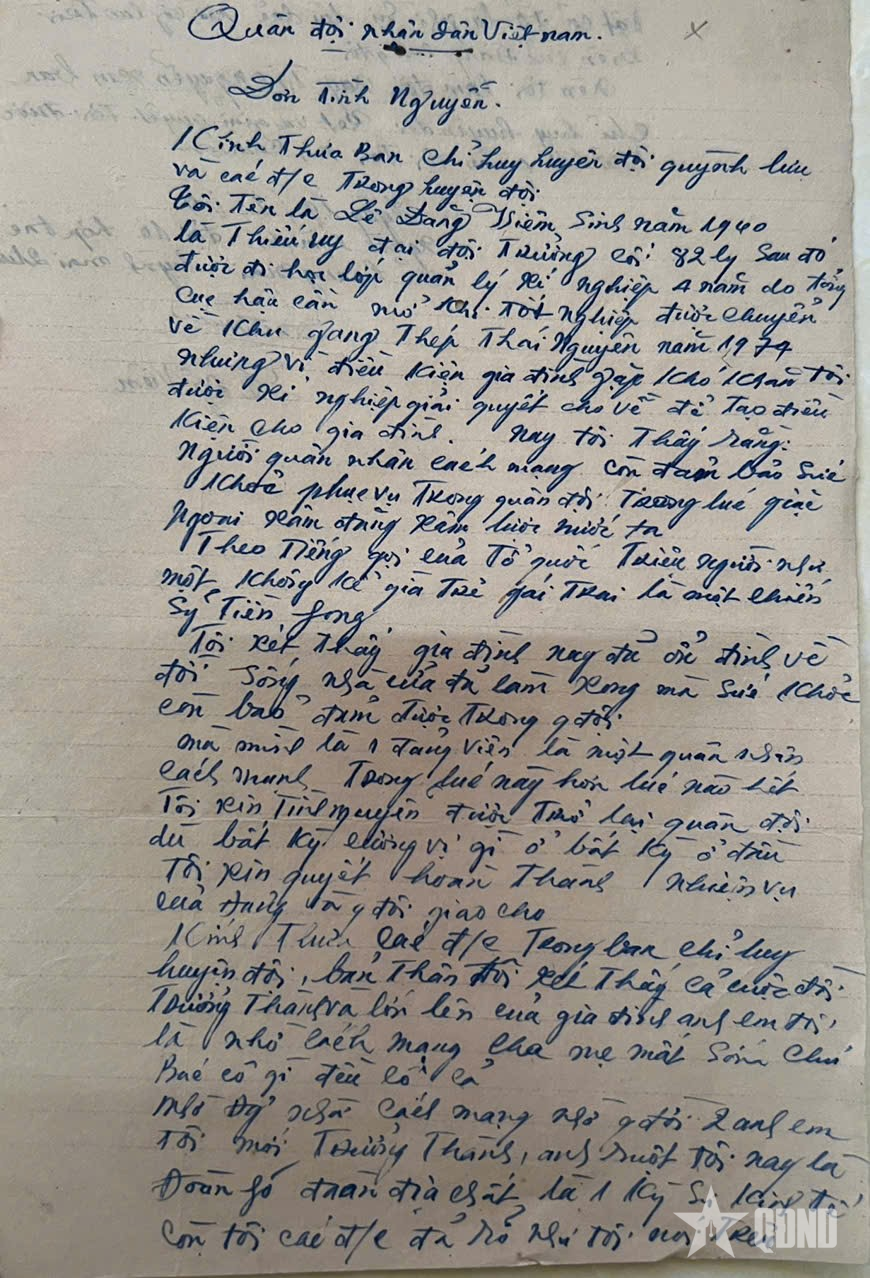 Quân đội nhân dân Việt nam.
Đơn Tình Nguyện.
Kính Thưa Ban chỉ huy huyện đội quỳnh lưu
và các đ/c Trong huyện đội
Tôi Tên là Lê Đăng Kiêm, Sinh năm 1940
là Thiếu úy đại đội Trưởng cối 82 ly Sau đó
được đi học lớp quản lý xí nghiệp 4 năm do tổng
cục hậu cần mở khi Tốt nghiệp được chuyển
về khu gang Thép Thái Nguyên năm 1974
nhưng vì điều kiện gia đình gặp khó khăn tôi
được xí nghiệp giải quyết cho về để Tạo điều
kiện cho gia đình. Nay tôi Thấy rằng:
Người quân nhân cách mạng còn đảm bảo sức
khỏe phục vụ Trong quân đội Trong lúc giặc
Ngoại xâm đang xâm lược nước ta
Theo Tiếng gọi của Tổ quốc Triệu người như
một không kể già Trẻ gái Trai là một chiến
sỹ Tiền
Tôi xét Thấy gia đình nay đã ổn định về
đời sống nhà cửa đã làm xong mà sức khỏe
còn bảo đảm được Trong qđội
mà mình là 1 đảng viên là một quân nhân
cách mạng Trong lúc này hơn lúc nào hết
Tôi xin Tình nguyện được Trở lại quân đội
dù bất kỳ cương vị gì ở bất kỳ ở đâu
Tôi xin quyết hoàn Thành nhiệm vụ
của Đảng và qđội giao cho
Kính Thưa các đ/c Trong ban chỉ huy
huyện đội, bản Thân tôi xét Thấy cả cuộc đời
Trưởng Thành và lớn lên của gia đình anh em tôi
là nhờ cách mạng cha mẹ mất Sớm chú
Bác cô gì đều cả
nhờ cách mạng nhờ qđội 2 anh em
tôi mới Trưởng Thành, anh ruột tôi nay là
Đoàn đoàn địa chất là 1 kỹ sư
còn tôi các đ/c đã rõ như tôi
QĐND